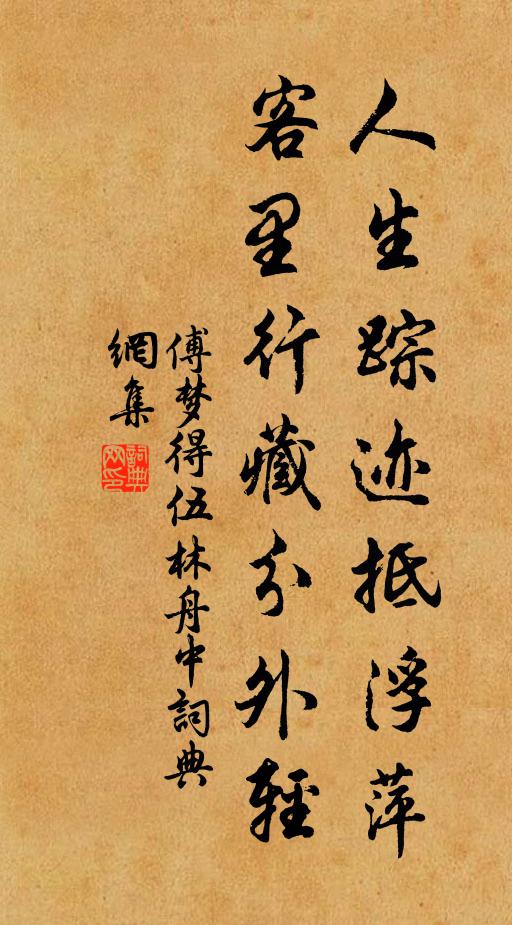 人生踪迹抵浮萍
客里行藏分外轻
傅梦得伍林舟中詞典
網集
詞典网印